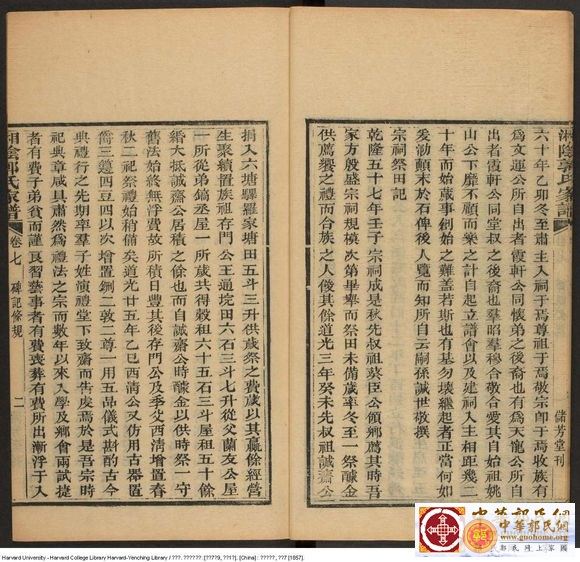 湘陰郭氏家譜
六十年乙卯冬至肅主入祠于焉尊祖于焉敬宗即于焉收族有
為文運公所自出者霞軒公同懷弟之後裔也有為天寵公所自
出者霞軒公同堂叔之後裔也羣昭羣穆合敬合愛其自始祖姚
山公下靡不願而樂之計自起立譜會以及建祠入主相距幾二
十年而始蕆事創始之難蓋若斯也有基勿壞繼起者正當何如
爰泐顛末于石俾後人覽而知所自云嗣孫誠世敬撰
宗祠祭田記
乾隆五十七年壬子宗祠成是秋先叔祖葵臣公領鄉薦其時吾
家方殷盛宗祠規模次第畢舉而祭田未備歲率冬至一祭醵金
供薦饗之禮而合族之人餕其餘道光三年癸未先叔祖誠齋公
儲芳堂刊
捐入六塘驛羅家塘田五斗三升供歲祭之費歲以其贏餘經營
生聚續置族祖存門公王通垸田六石三斗七升從父蘭友公屋
一所從弟鎬丞屋一所歲共得穀租六十五石三斗屋租五十餘
緡大抵誠齋公居積之餘也而自誠齋公時醵金以供時祭一守
舊法始終無浮費故所積日豐其後存門公及季父西淸增置春
秋二祀祭禮始稍備矣道光廿五年乙巳西淸公又仿用古器置
爵三籩四豆四以次增置鉶二敦二尊一用五品儀式斟酌古今
典禮行之先期率羣子姓演禮堂下致齋而告虔焉於是吾宗時
祀典章咸具肅然為禮法之宗而數年以來入學及鄉會兩試捷
者有費子弟貧而謹良習藝事者有費喪葬有費所出漸浮于入
湘陰郭氏家譜
卷七 碑記條規
二
中華郭氏網
www.guohome.org
郭氏陵上軍園
Harvard University - Harvard College Library Harvard-Yenching Library / ???. ??????. [????9, ??1?]. [China] : ?????, ??7 [1857].